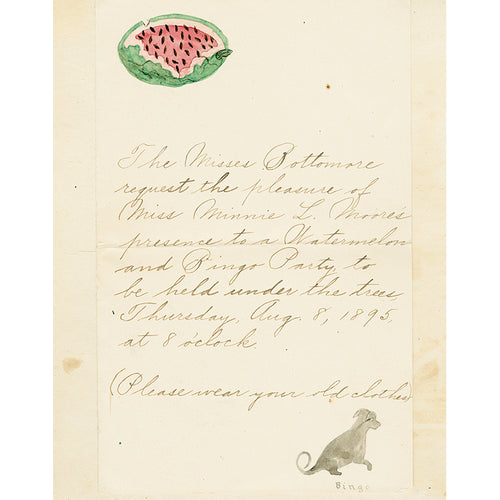 The Misses Bottomore
request the pleasure of
Miss Minnie L. Moore's
presence to a Watermelon
and Bingo Party, to
be held under the trees,
Thursday, Aug. 8, 1895,
at 8 o'clock.
(Please wear your old clothes)
Bingo